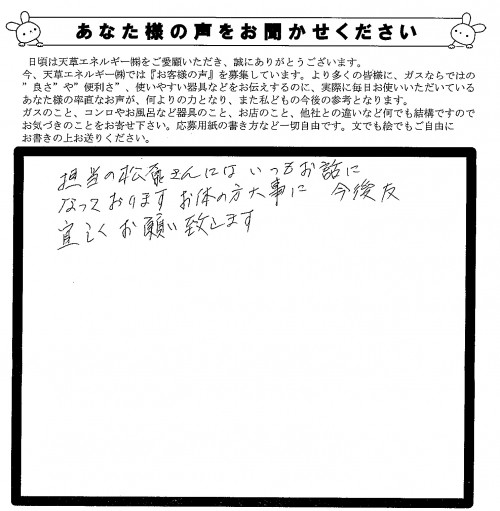 あなた様の声をお聞かせください
日頃は天草エネルギー㈱をご愛願いただき、誠にありがとうございます。
今、天草エネルギー㈱では『お客様の声』を募集しています。より多くの皆様に、ガスならではの
”良さ”や”便利さ”、使いやすい器具などをお伝えするのに、実際に毎日お使いいただいている
あなた様の率直なお声が、何よりの力となり、また私どもの今後の参考となります。
ガスのこと、コンロやお風呂など器具のこと、お店のこと、他社との違いなど何でも結構ですので
お気づきのことをお寄せ下さい。応募用紙の書き方など一切自由です。文でも絵でもご自由に
お書きの上お送りください。
担当の松 さんには いつもお話に
なっております お体の方大事に 今後友
宜しくお願い致します